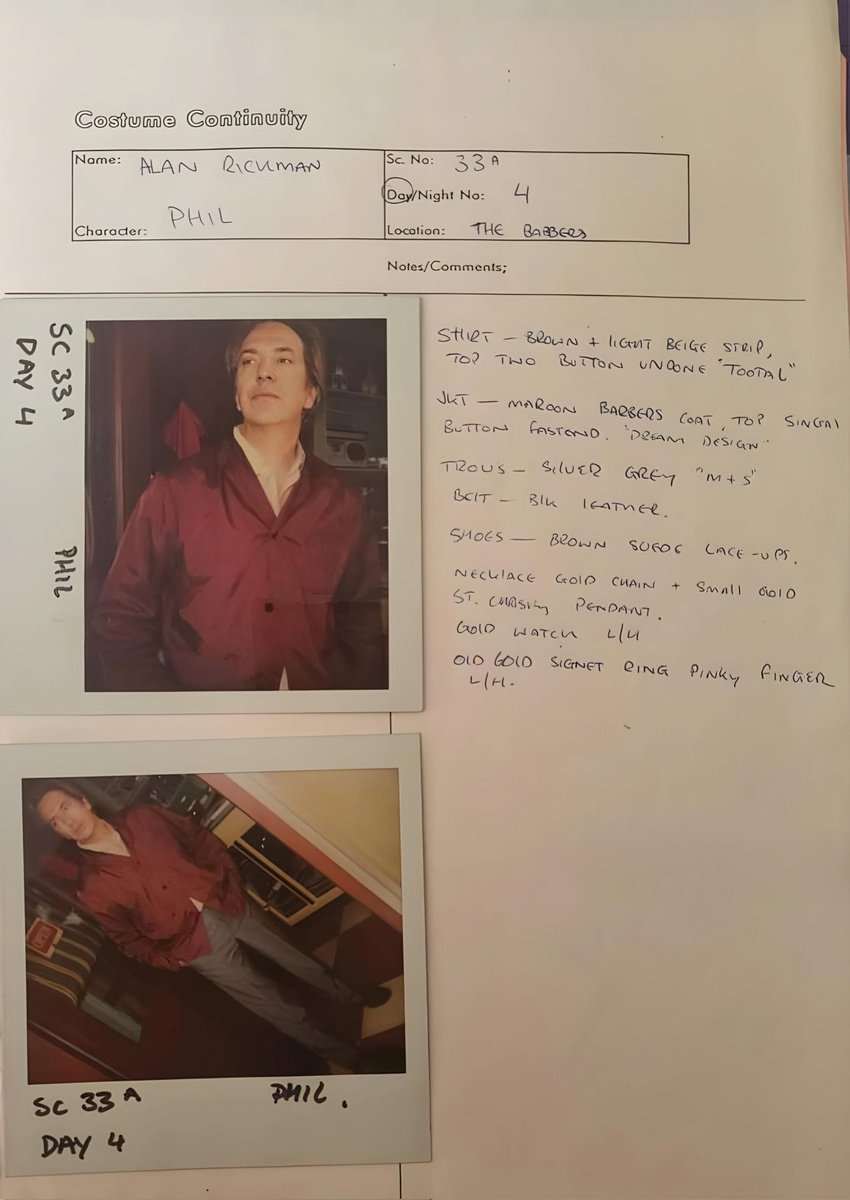 Costume Continuity
Name: ALAN RICKMAN
Character: PHIL
Sc. No: 33A
Day/Night No: 4
Location: THE BARBERS
Notes/Comments;
SC 33A PHIL
DAY 4
SHIRT — BROWN + LIGHT BEIGE STRIP,
TOP TWO BUTTON UNDONE "TOOTAL"
JKT — MAROON BARBERS COAT, TOP
BUTTON FASTOND. "DREAM DESIGN"
TROUS — SILVER GREY "M + S"
BELT — BLK LEATHER.
SHOES — BROWN SUEDE LACE-UPS.
NECKLACE GOLD CHAIN + SMALL GOLD
ST. PENDANT.
GOLD WATCH L/H
OLD GOLD SIGNET RING PINKY FINGER
L/H.
SC 33A PHIL.
DAY 4